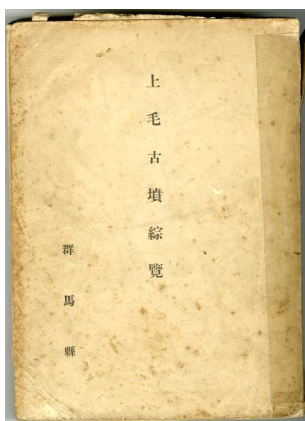 上毛古墳綜覽
群馬縣